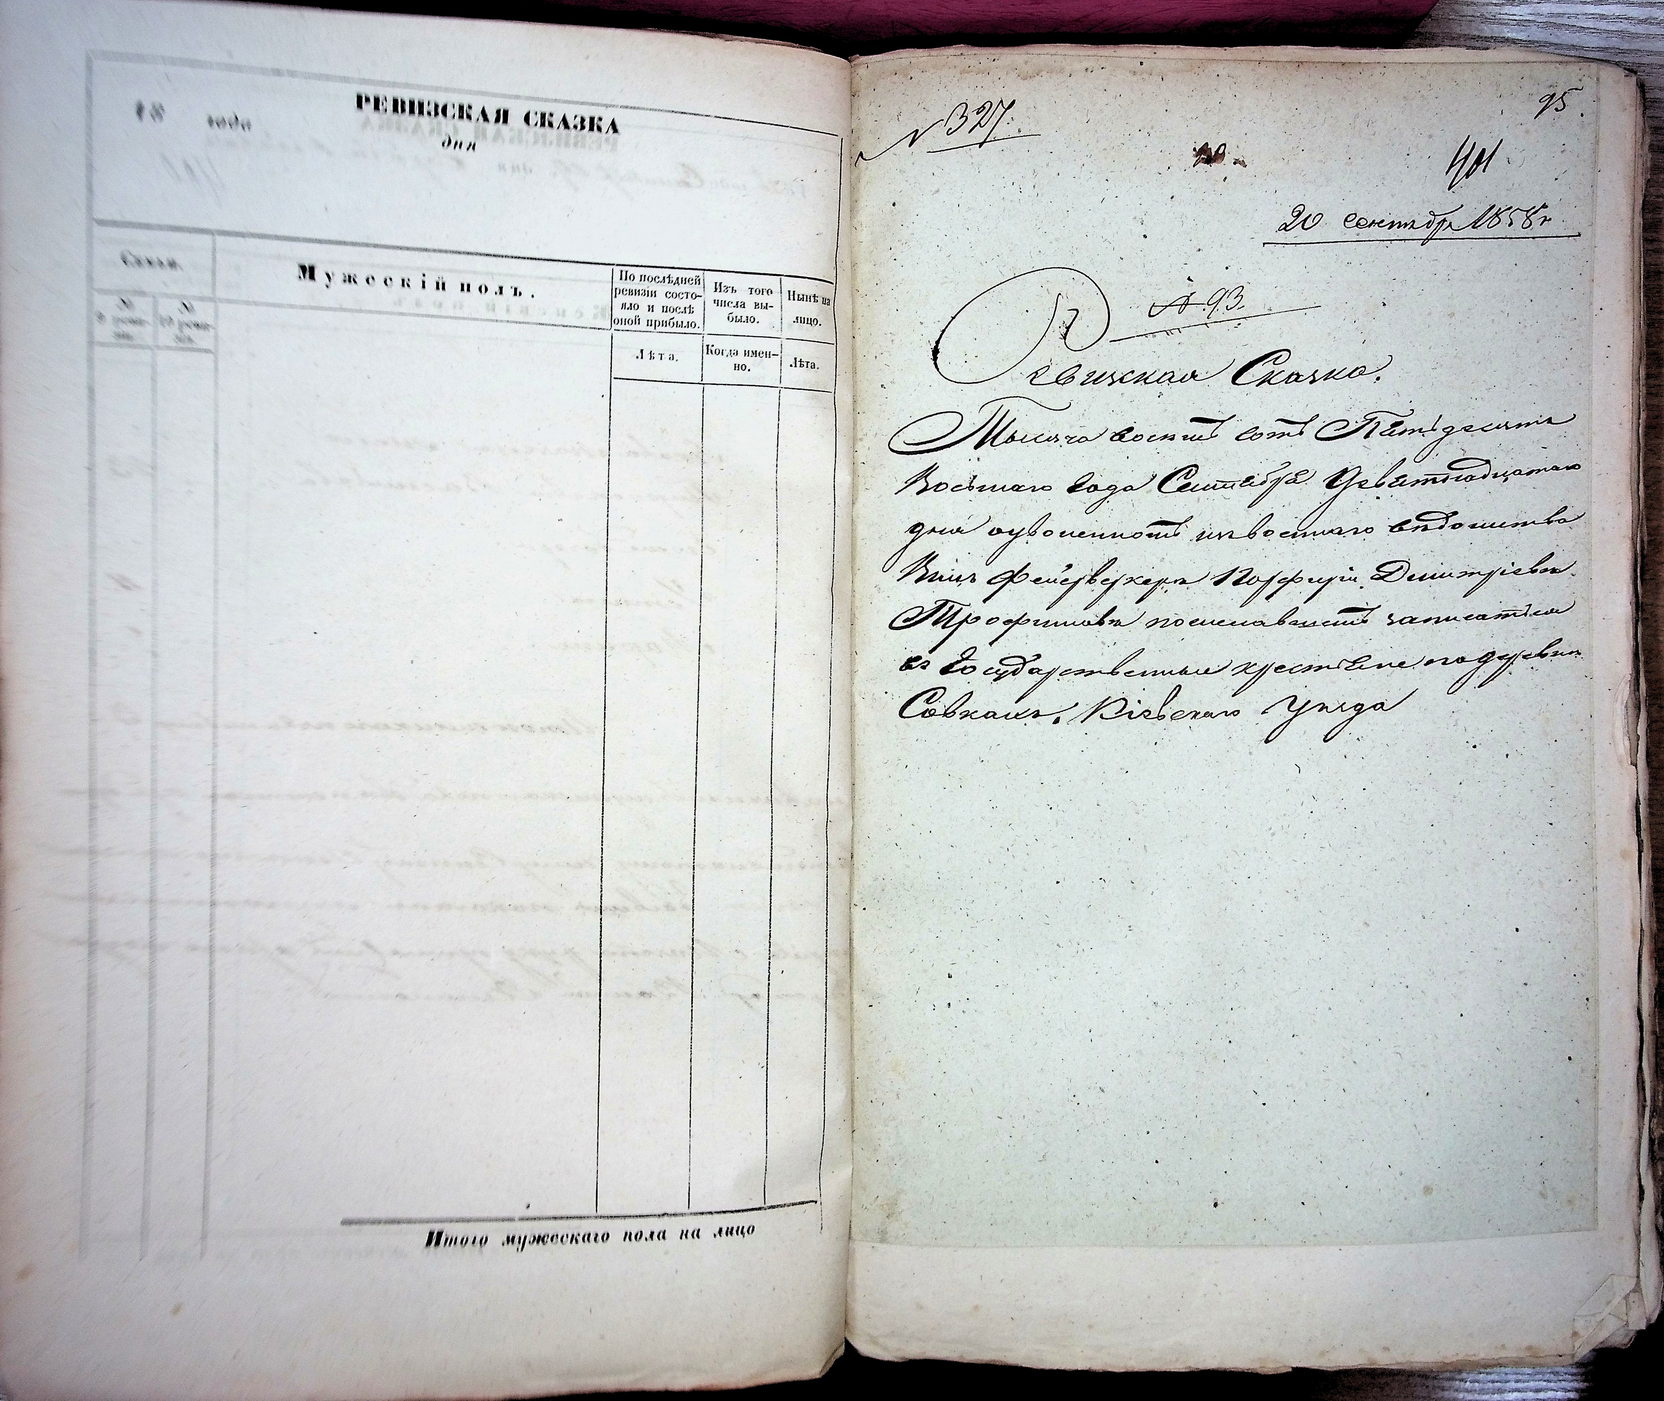 РЕВИЗСКАЯ СКАЗКА
18 года дня
Семьи.
Мужескій полъ.
По последней ревизіи состояло и послѣ оной прибыло.
Изъ того числа выбыло.
Нынѣ на лицо.
Лѣта.
Когда именно.
Лѣта.
Итого мужескаго пола на лицо
№ 327.
95.
401
20 сентябр 1858 г
№ 93.
Ревизская Сказка.
Тысяча восемь сотъ Пятьдесятъ
Восьмаго Года Сентября Девятнадцатаго
дня о уволенномъ изъ военнаго вѣдомства
Фейерверкера Порфирія Димитріева
Трофимова записаться
въ Государственные крестьяне по деревни
Совкахъ, Кіевскаго Уѣзда